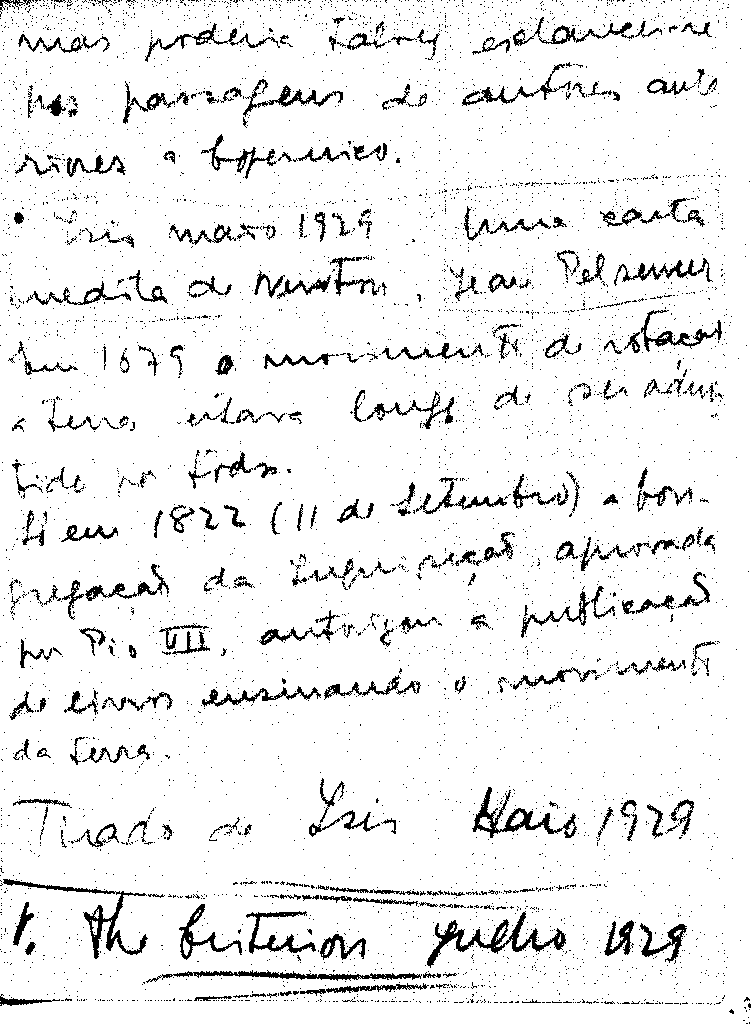 mas poderia talvez esclarecer-se
nas passagens de autores ante
riores a Copernico.
• Isis março 1929. Uma carta
inedita de Newton, Jean Pelseneer
Em 1679 o movimento de rotaçaõ
a terra estava longe de ser admi
tido por todos.
Só em 1822 (11 de Setembro) a Con-
gregaçaõ da Inquisiçaõ, aprovada
por Pio VII, autorizou a publicaçaõ
de livros ensinando o movimento
da terra.
Tirado de Isis Maio 1929
V. The Criterion Julho 1929